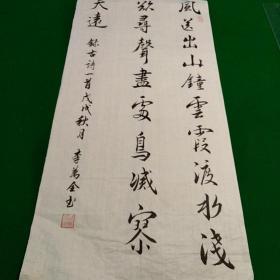 風送出山鐘雲霞渡水淺
欲尋聲盡處鳥滅寥
天遠
錄古詩一首戊戌秋月 李萬金书